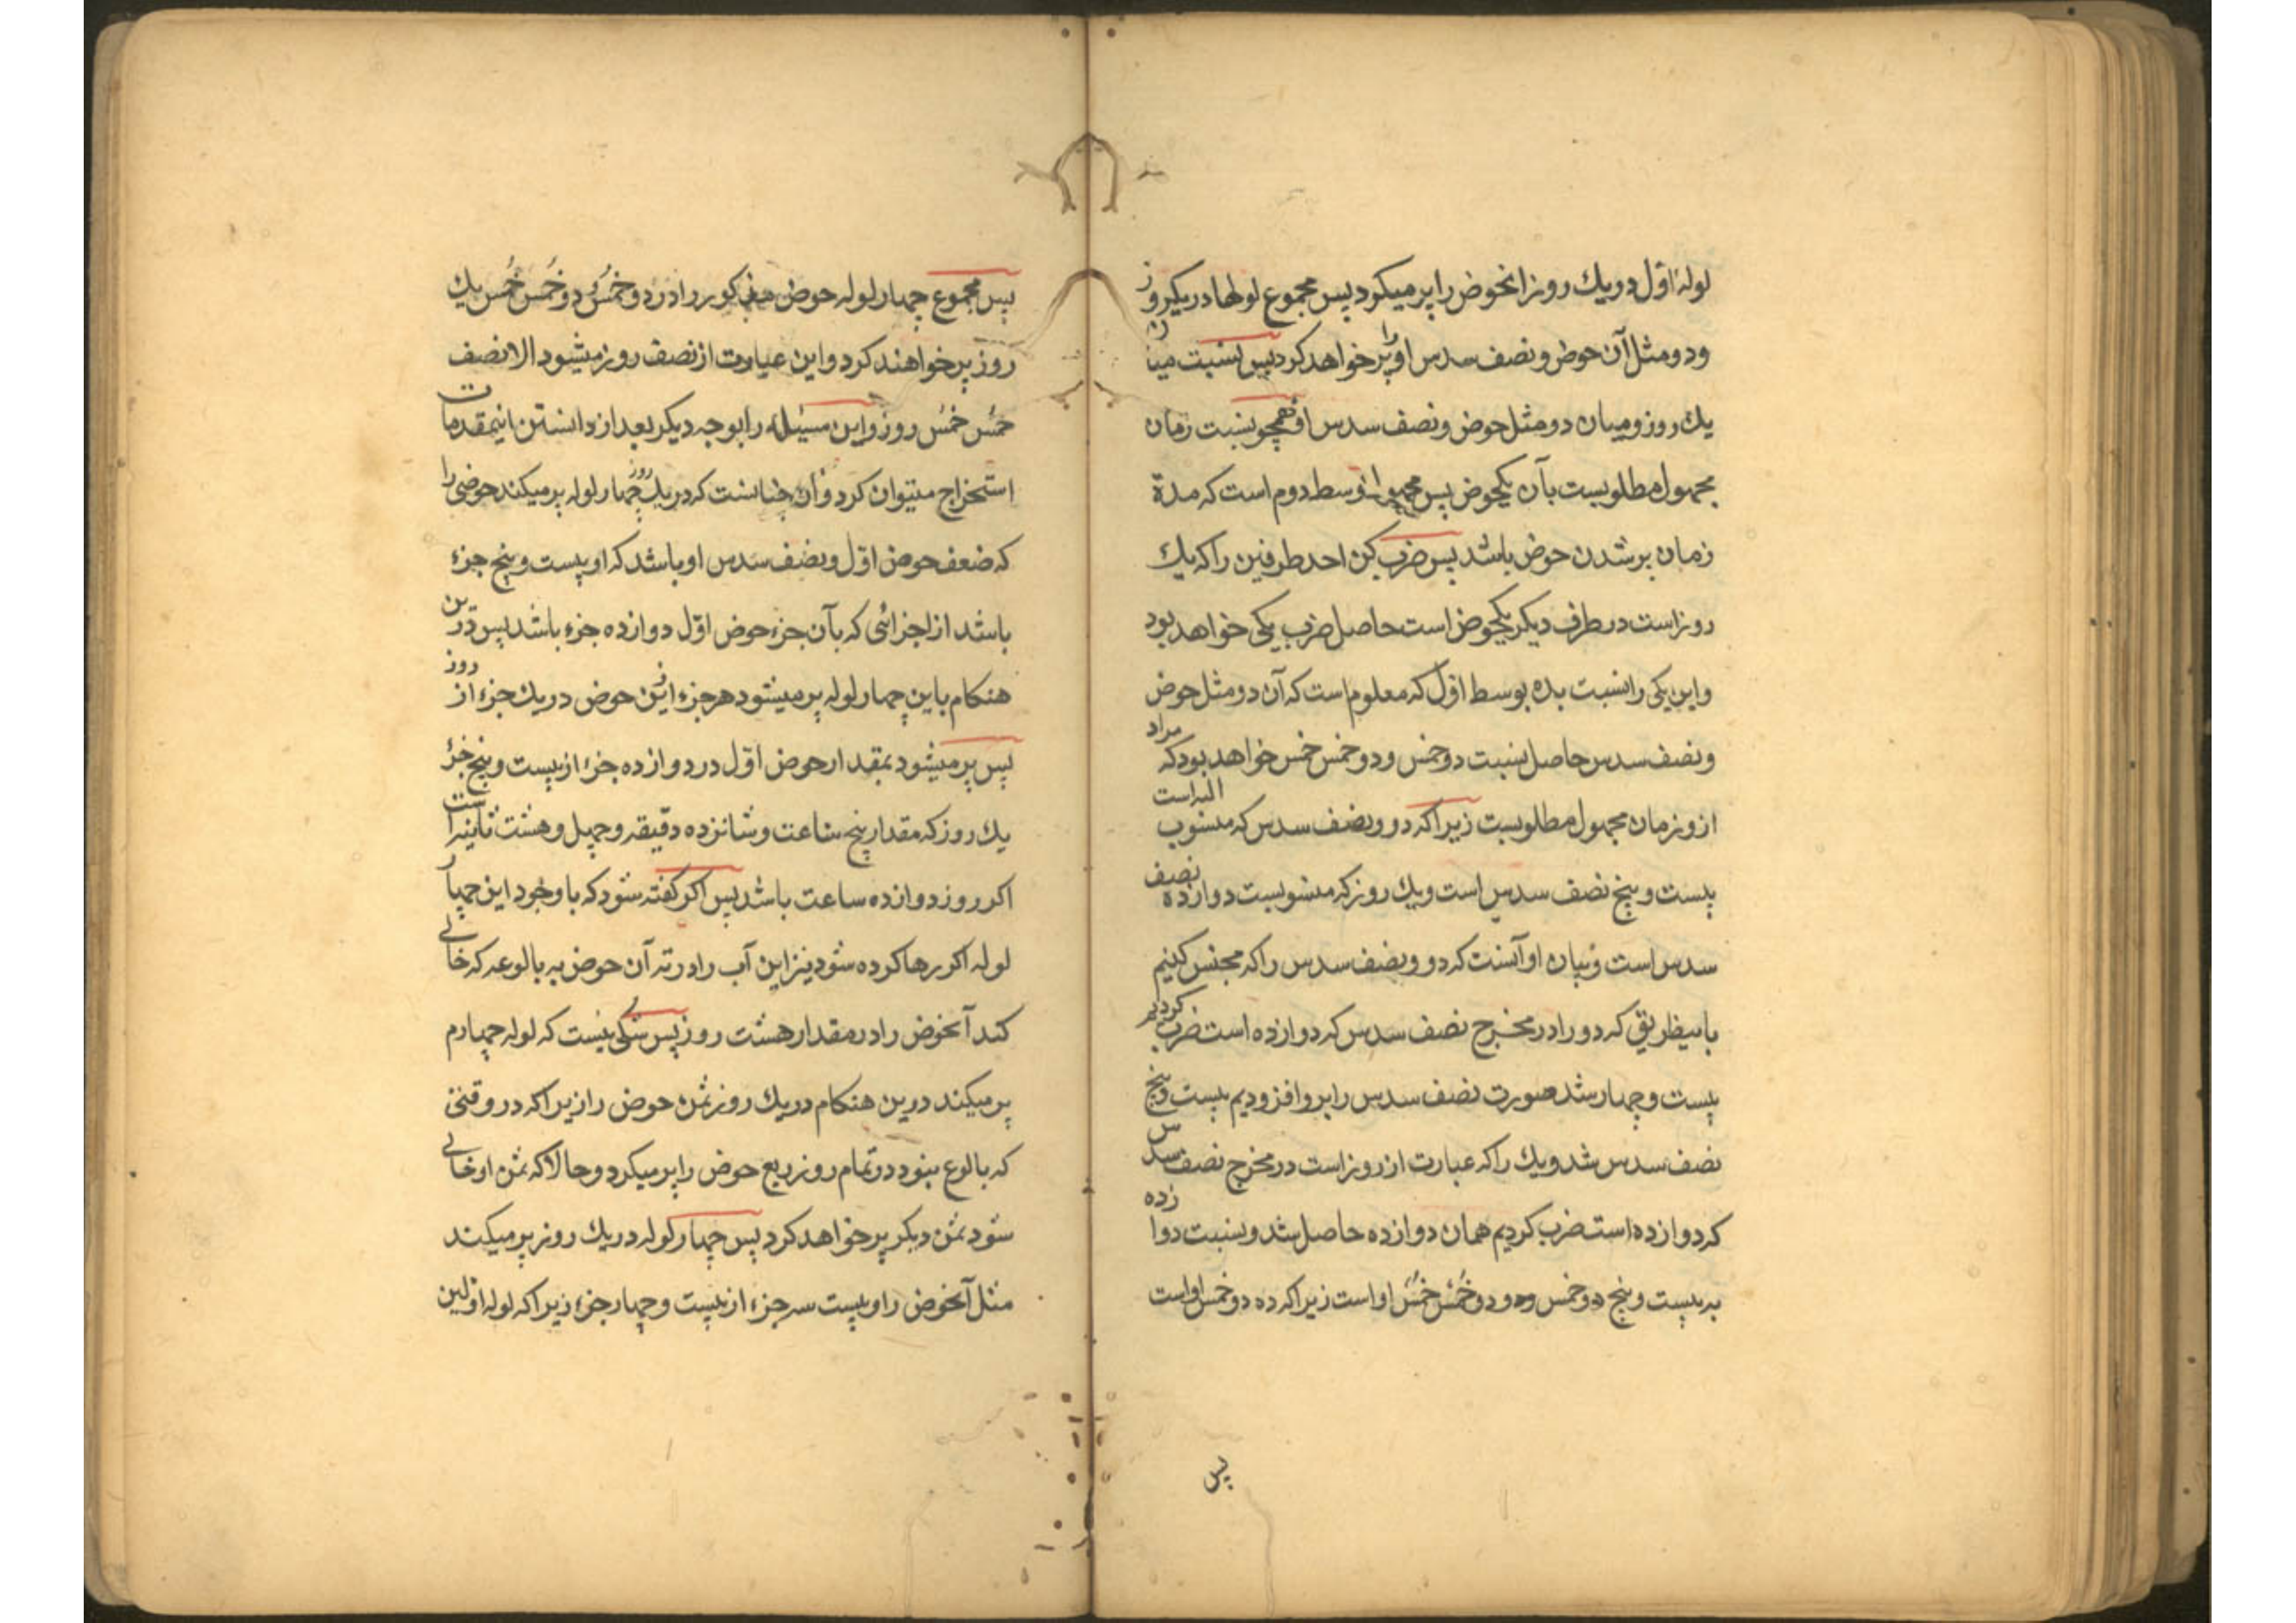 لولهٔ اوّل در یك روز انحوض را پر میكرد پس مجموع لولها در یكروز
ودو مثل آن حوض و نصف سدس او را پر خواهد كرد پس نسبت میان
یك روز و میان دو مثل حوض و نصف سدس او همچو نسبت زمان
مجهول مطلوبست بآن یكحوض پس مجهول وسط دوم است كه مدة
زمان پر شدن حوض باشد پس ضرب كن احد طرفین را كه یك
روز است در طرف دیكر یكحوض است حاصل ضرب یكی خواهد بود
واین یكی را نسبت بده بوسط اوّل كه معلوم است كه آن دو مثل حوض
و نصف سدس حاصل نسبت دو خمس و دو خمس خمس خواهد بود كه مراد
ازو زمان مجهول مطلوبست زیرا كه دو و نصف سدس كه منسوب الیه است
بیست و پنج نصف سدس است و یك روز كه منسوبست دوازده نصف
سدس است و بیان او آنست كه دو و نصف سدس را كه مجنس كنیم
باینطریق كه دو را در مخرج نصف سدس كه دوازده است ضرب كردیم
بیست و چهار شد صورت نصف سدس را برو افزودیم بیست و پنج
نصف سدس شد و یك را كه عبارت از روز است در مخرج نصف سدس
كه دوازده است ضرب كردیم همان دوازده حاصل شد و نسبت دوازده
به بیست و پنج دو خمس و دو خُمْس خُمْس او است زیرا كه ده دو خمس او است
پس
پس مجموع چهار لوله حوض مذكور را در دو خُمْس و دو خُمْس خُمْس یك
روز پر خواهند كرد و این عبارت از نصف روز میشود الا نصف
خُمْس خُمْس روز و این مسئله را بوجه دیكر بعد از دانستن اینمقدمات
استخراج میتوان كرد و آن چنانست كه در یك روز چهار لوله پر میكند حوضی را
كه ضعف حوض اوّل و نصف سدس او باشد كه او بیست و پنج جزء
باشد از اجزائی كه بآن جزء حوض اوّل دوازده جزء باشد پس درین
هنكام باین چهار لوله پر میشود هر جزء ازین حوض در یك جزء از روز
پس پر میشود بمقدار حوض اوّل در دوازده جزء از بیست و پنج جزء
یك روز كه مقدار پنج ساعت و شانزده دقیقه و چهل و هشت ثانیه است
اكر روز دوازده ساعت باشد پس اكر كفته شود كه با وجود این چهار
لوله اكر رها كرده شود نیز این آب را در ته آن حوض به بالوعه كه خالی
كند آنحوض را در مقدار هشت روز پس شكی نیست كه لوله چهارم
پر میكند درین هنكام در یك روز ثمن حوض را زیرا كه در وقتی
كه بالوع نبود در تمام روز ربع حوض را پر میكرد و حالا كه ثمن او خالی
شود ثمن دیكر پر خواهد كرد پس چهار لوله در یك روز پر میكند
مثل آنحوض را و بیست سه جزء از بیست و چهار جزء زیرا كه لوله اوّلین